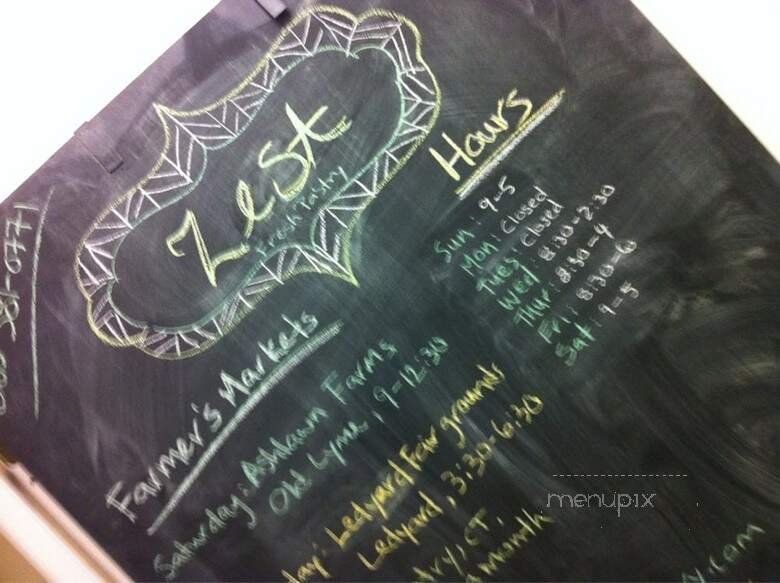 Zest
Fresh Pastry
Hours
Sun: 9-5
Mon: Closed
Tues: Closed
Wed: 8:30-2:30
Thur: 8:30-4
Fri: 8:30-6
Sat: 9-5
Farmer's Markets
Saturday: Ashlawn Farms
Old Lyme, 9-12:30
day: Ledyard Fair grounds
Ledyard, 3:30-6:30
try, CT,
month
.com
581-0771
menupix